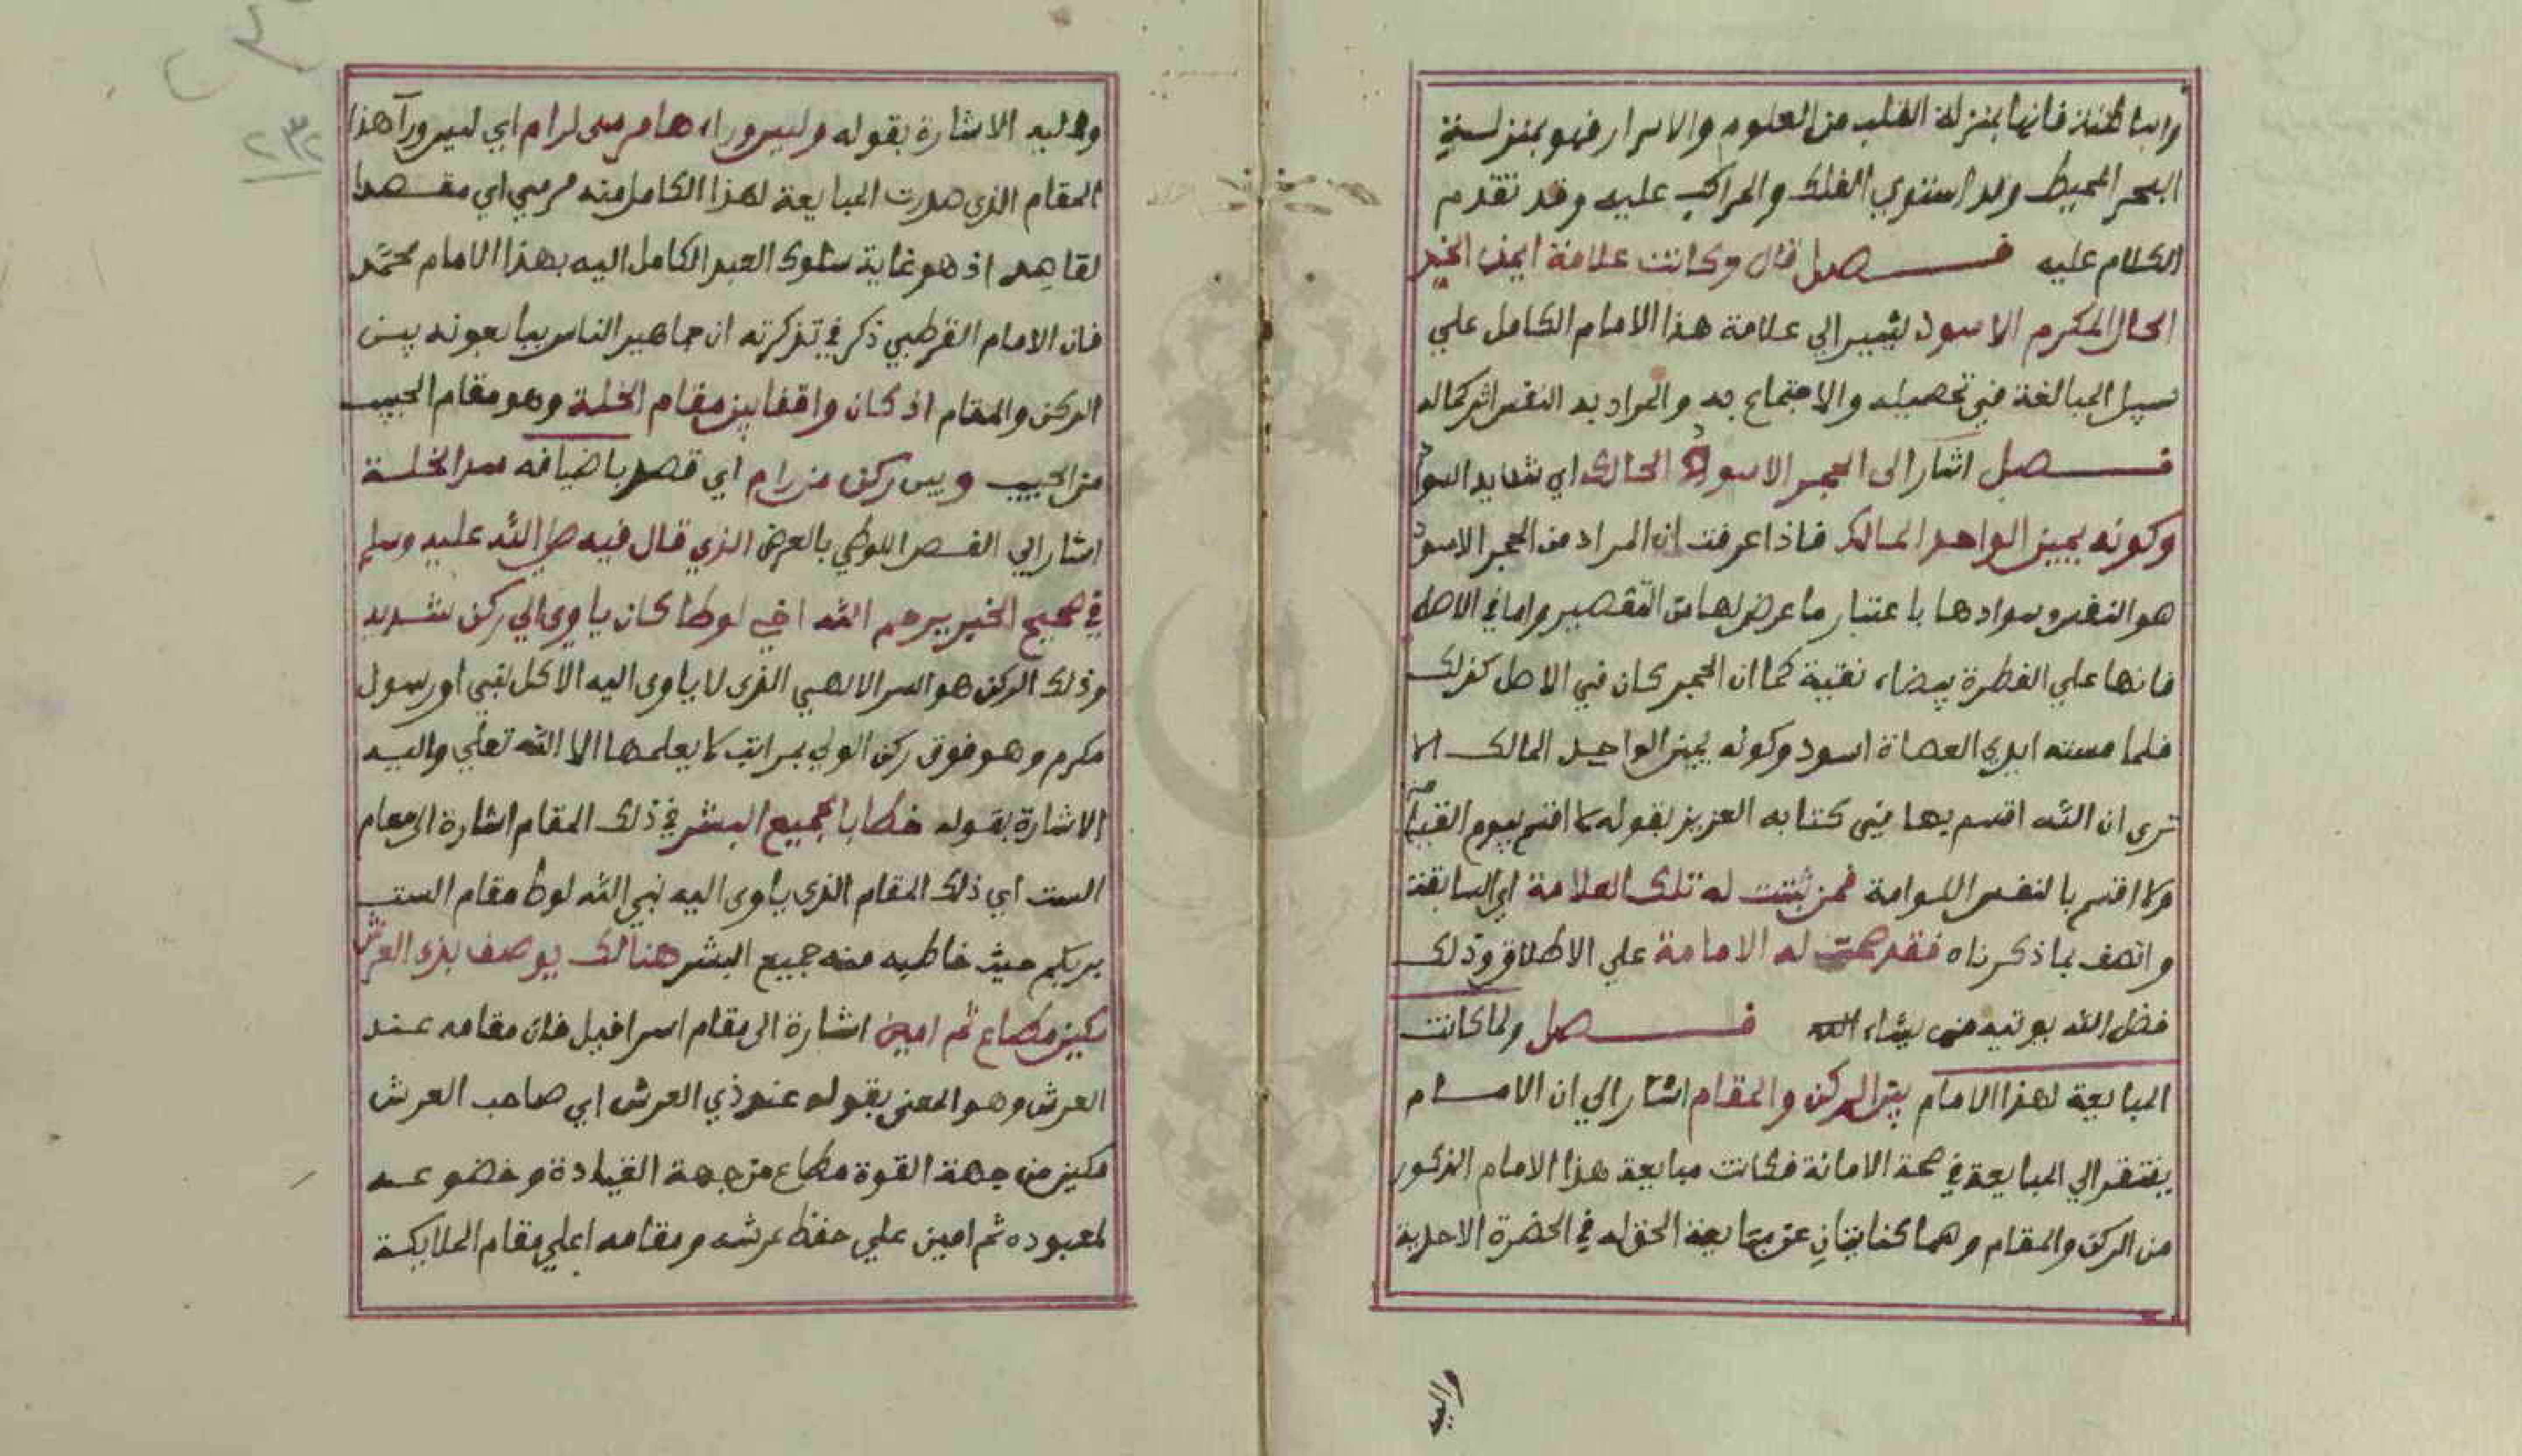 واما كمثله فانها بمنزلة القلب من العلوم والاسرار فهو بمنزلة
البحر المحيط وقد استوي الفلك والمراكب عليه وقد تقدم
الكلام عليه فصل قال وكانت علامة ايمن الخد
الخال المكرم الاسود يشير الي علامة هذا الامام الكامل علي
سبيل المبالغة في تحصيله والاجتماع به والمراد به النفس اثر كماله
فصل اشار الى الحجر الاسود الحالك اي شديد السواد
وكونه يمين الواحد المالك فاذا عرفت ان المراد من الحجر الاسود
هو النفس وسوادها باعتبار ما عرض لها من التقصير واما في الاصل
فانها علي الفطرة بيضاء نقية كما ان الحجر كان في الاصل كذلك
فلما مسته ايدي العصاة اسود وكونه يمين الواحد المالك الا
تري ان الله اقسم بها في كتابه العزيز بقوله لا اقسم بيوم القيامة
ولا اقسم بالنفس اللوامة فمن ثبتت له تلك العلامة اي السابقة
واتصف بما ذكرناه فقد صحت له الامامة علي الاطلاق وذلك
فضل الله يوتيه من يشاء الله فصل ولما كانت
المبايعة لهذا الامام بين الركن والمقام اشار الي ان الامام
يفتقر الي المبايعة في صحة الامانة فكانت مبايعة هذا الامام المذكور
من الركن والمقام وهما كنايتان عن مبايعة الحق له في الحضرة الاحدية
واليه
٢٣٢
واليه الاشارة بقوله وليس وراء هذا مرمى لرام اي ليس ورآ هذا
المقام الذي صدرت المبايعة لهذا الكامل منه مرمي اي مقصدا
لقاصد اذ هو غاية سلوك العبد الكامل اليه بهذا الامام محمد
فان الامام القرطبي ذكر في تذكرته ان جماهير الناس يبايعونه بين
الركن والمقام اذ كان واقفا بين مقام الخلة وهو مقام الحبيب
من الحبيب وبين ركن من رام اي قصد باضيافه سد الخلة
اشار الي القصر اللوطي بالعرض الذي قال فيه صلى الله عليه وسلم
في صحيح الخبر يرحم الله اخي لوطا كان ياوى الي ركن شديد
وذلك الركن هو السر الالهي الذى لا ياوى اليه الا كل نبي او رسول
مكرم وهو فوق ركن الولي بمراتب لا يعلمها الا الله تعلي واليه
الاشارة بقوله خطابا لجميع البشر في ذلك المقام اشارة الى مقام
الست اي ذلك المقام الذى ياوى اليه نبي الله لوط مقام الست
بربكم حيث خاطبه منه جميع البشر هنالك يوصف بذى العرش
مكين مطاع ثم امين اشارة الى مقام اسرافيل فان مقامه عند
العرش وهو المعنى بقوله عند ذي العرش اي صاحب العرش
مكين من جهة القوة مطاع من جهة القيادة وخضوعه
لمعبوده ثم امين علي حفظ عرشه ومقامه اعلي مقام الملايكة